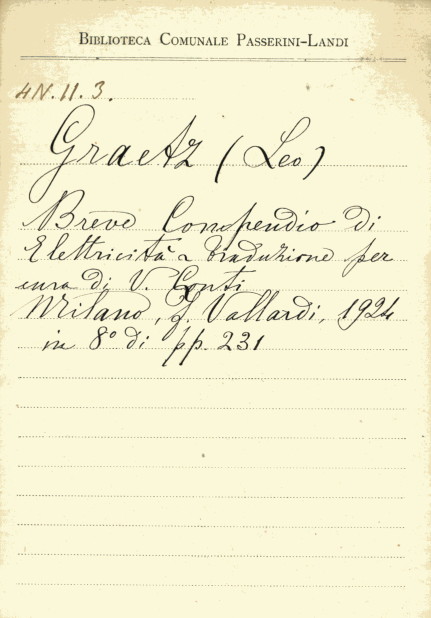 BIBLIOTECA COMUNALE PASSERINI-LANDI
4N.II.3.
Graetz (Leo)
Breve Compendio di
Elettricità - traduzione per
cura di V. Conti
Milano, F. Vallardi, 1924
in 8° di pp. 231